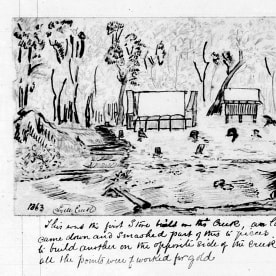 1863
This was the first Store build on the Creek, an
came down and smashed part of this to pieces
to build another on the opposite side of the Creek
all the points were worked for gold